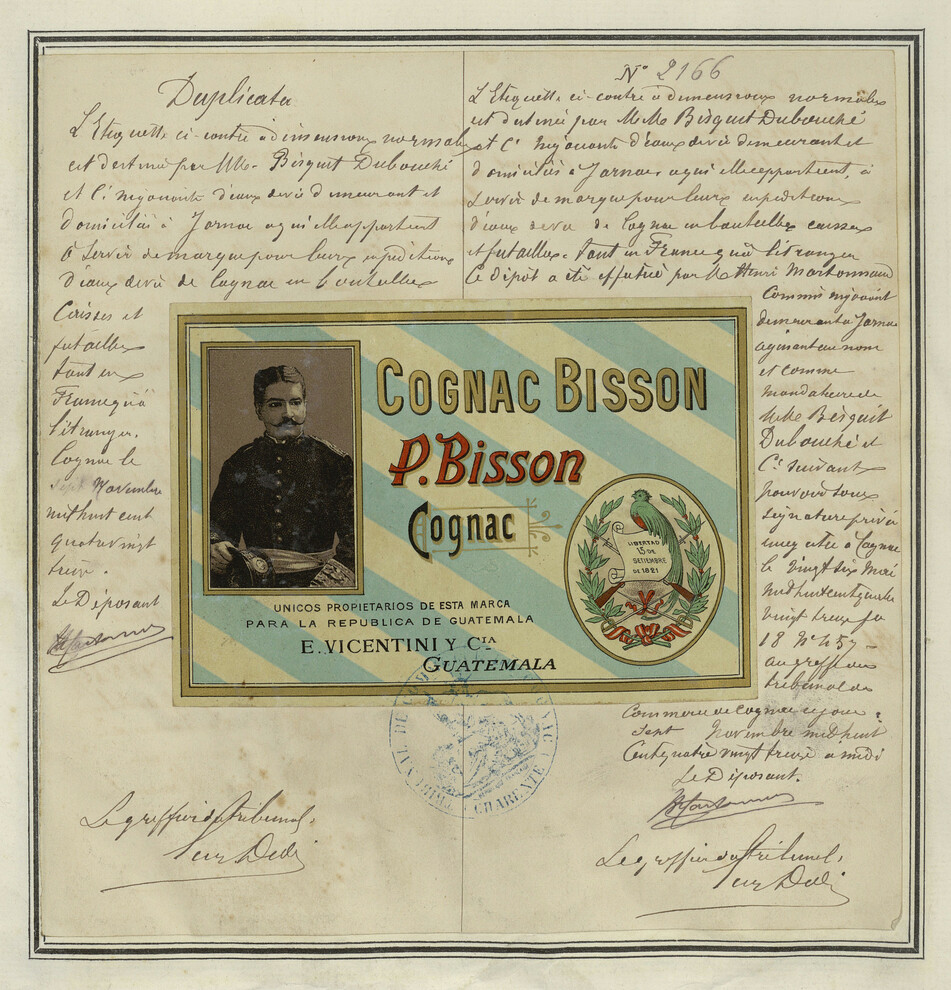 Duplicata
L'Etiquette ci-contre à dimensions normales
est destinée par MM. Bisquit Dubouché
et Cie négociants d'eaux de vie demeurant et
domiciliés à Jarnac à qui elle appartient
à servir de marque pour leurs expéditions
d'eaux de vie de Cognac en bouteilles
Caisses et
futailles
tant en
France qu'à
l'étranger.
Cognac le
sept Novembre
mil huit cent
quatre vingt
treize.
Le Déposant
Le greffier du tribunal,
No 2166
L'Etiquette ci-contre à dimensions normales
est destinée par MM. Bisquit Dubouché
et Cie négociants d'eaux de vie demeurant et
domiciliés à Jarnac, à qui elle appartient, à
servir de marque pour leurs expéditions
d'eaux de vie de Cognac en bouteilles caisses
et futailles, tant en France qu'à l'étranger
Ce dépôt a été effectué par M. Henri Martonnaud
Commis négociant
demeurant à Jarnac
agissant au nom
et comme
mandataire de
MM. Bisquit
Dubouché et
Cie suivant
pouvoir sous
signature privée
enregistré à Cognac
le vingt six Mai
mil huit cent quatre
vingt treize fo
18 No 457
au greffe du
tribunal de
Commerce de Cognac ce jour
sept Novembre mil huit
cent quatre vingt treize à midi
Le Déposant.
Le greffier du tribunal,
COGNAC BISSON
P. Bisson
Cognac
LIBERTAD
15 DE
SETIEMBRE
DE 1821
UNICOS PROPIETARIOS DE ESTA MARCA
PARA LA REPUBLICA DE GUATEMALA
E. VICENTINI Y CIA
GUATEMALA
TRIBUNAL DE COGNAC
CHARENTE